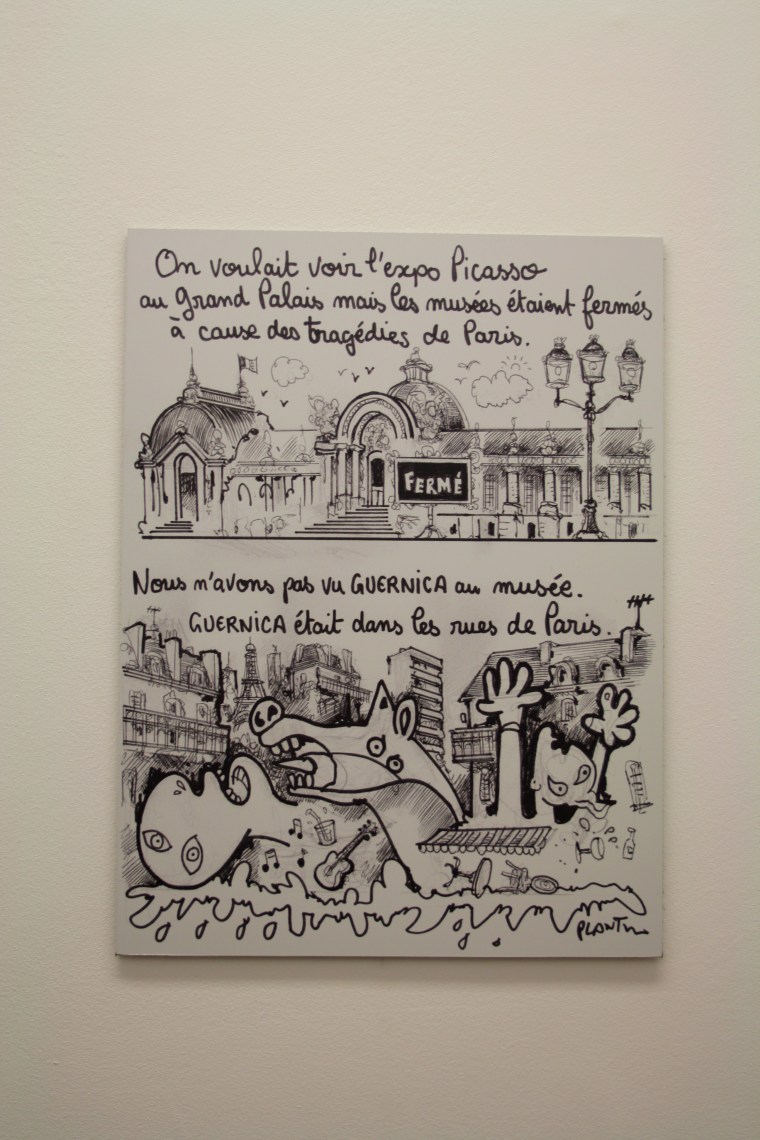 On voulait voir l'expo Picasso
au Grand Palais mais les musées étaient fermés
à cause des tragédies de Paris.
FERMÉ
Nous n'avons pas vu GUERNICA au musée.
GUERNICA était dans les rues de Paris.
PLANTU